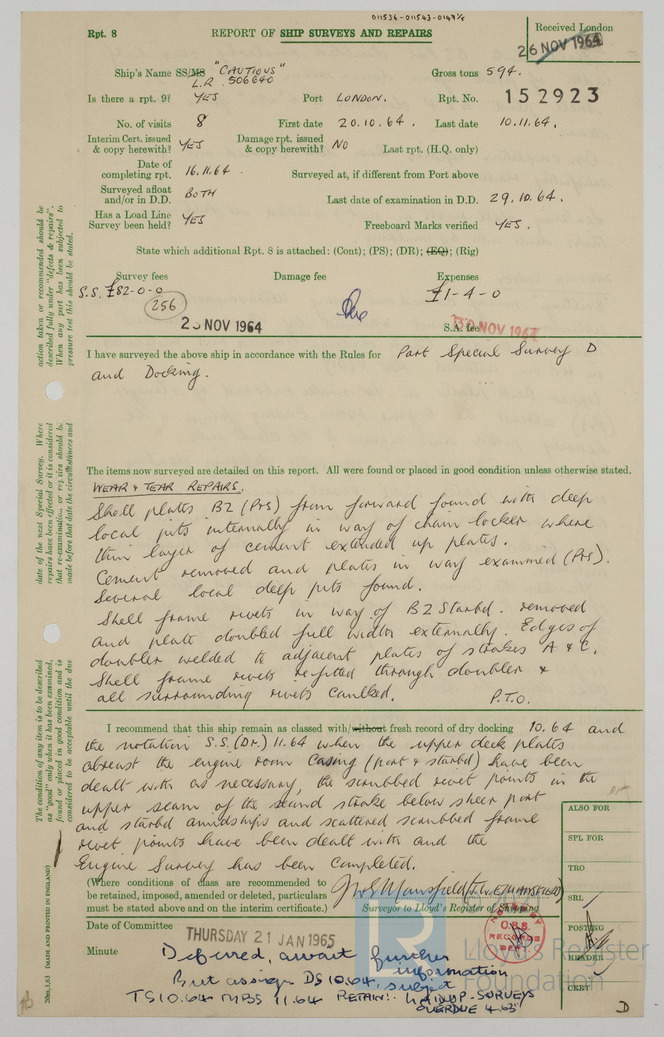 011536-011543-0147½
Rpt. 8
REPORT OF SHIP SURVEYS AND REPAIRS
Received London
26 NOV 1964
Ship's Name SS/MS "CAUTIOUS"
L.R. 506640
Gross tons 594.
Is there a rpt. 9? YES
Port LONDON.
Rpt. No. 152923
No. of visits 8
First date 20.10.64.
Last date 10.11.64.
Interim Cert. issued & copy herewith? YES
Damage rpt. issued & copy herewith? NO
Last rpt. (H.Q. only)
Date of completing rpt. 16.11.64.
Surveyed at, if different from Port above
Surveyed afloat and/or in D.D. BOTH
Last date of examination in D.D. 29.10.64.
Has a Load Line Survey been held? YES
Freeboard Marks verified YES.
State which additional Rpt. 8 is attached: (Cont); (PS); (DR); (EQ); (Rig)
Survey fees
Damage fee
Expenses
S.S. £82-0-0
£1-4-0
256
NOV 1964
S.A. fee
NOV 1964
I have surveyed the above ship in accordance with the Rules for Part Special Survey D
and Docking.
The items now surveyed are detailed on this report. All were found or placed in good condition unless otherwise stated.
WEAR & TEAR REPAIRS.
Shell plates B2 (P&S) from forward found with deep
local pits internally in way of chain locker where
thin layer of cement extended up plates.
Cement removed and plates in way examined (P&S).
Several local deep pits found.
Shell frame rivets in way of B2 Starbd. removed
and plate doubled full width externally. Edges of
doubler welded to adjacent plates of strakes A & C.
Shell frame rivets refitted through doubler &
all surrounding rivets caulked.
P.T.O.
I recommend that this ship remain as classed with/without fresh record of dry docking 10.64 and
the notation S.S. (Dr.) 11.64 when the upper deck plates
abreast the engine room casing (port & starbd) have been
dealt with as necessary, the scrubbed rivet points in the
upper seam of the second strake below sheer port
and starbd amidships and scattered scrubbed frame
rivet points have been dealt with and the
Engine Survey has been completed.
(Where conditions of class are recommended to
be retained, imposed, amended or deleted, particulars
must be stated above and on the interim certificate.)
Surveyor to Lloyd's Register of Shipping
Date of Committee
THURSDAY 21 JAN 1965
Minute
Deferred, await further
information
But assign DS 10.64, subject
TS 10.64 MBS 11.64 RETAIN:- LAID UP - SURVEYS
OVERDUE 4.65
ALSO FOR
SPL FOR
TRO
SRL
POSTING
HEADER
CERT
D
RECORDS
Lloyd's Register
Foundation
action taken or recommended should be
described fully under "defects & repairs".
When any part has been subjected to
pressure test this should be stated.
date of the next Special Survey. Where
repairs have been effected or it is considered
that re-examination or repairs should be
made before that date the circumstances and
The condition of any item is to be described
as "good" only when it has been examined,
found or placed in good condition and is
considered to be acceptable until the due
20m,3,63 (MADE AND PRINTED IN ENGLAND)